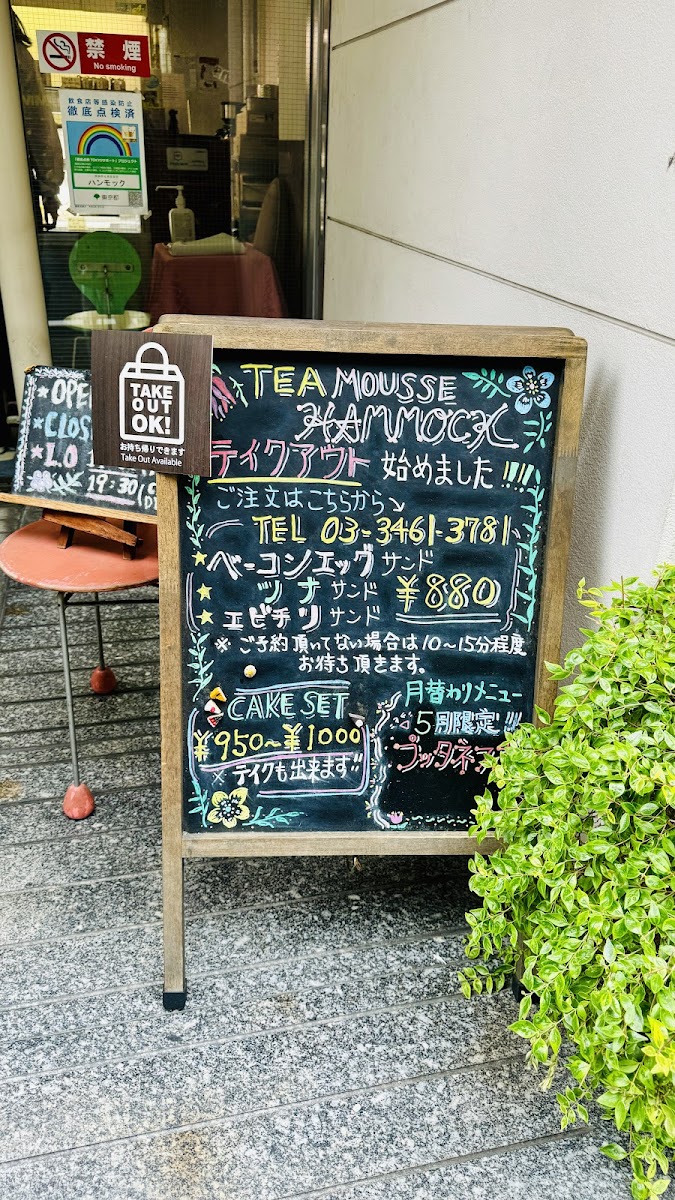 禁煙
No smoking
飲食店等感染防止
徹底点検済
ハンモック
東京都
OPE
CLOS
L.O
19:30
TAKE
OUT
OK!
お持ち帰りできます
Take Out Available
TEA MOUSSE
HAMMOCK
テイクアウト 始めました!!!!
ご注文はこちらから↘
TEL 03-3461-3781
★ベーコンエッグサンド
★ツナサンド ¥880
★エビチリサンド
※ご予約頂いてない場合は10〜15分程度
お待ち頂きます。
CAKE SET
¥950〜¥1000
※テイクも出来ます!!
月替わりメニュー
5月限定!!!
プッタネス